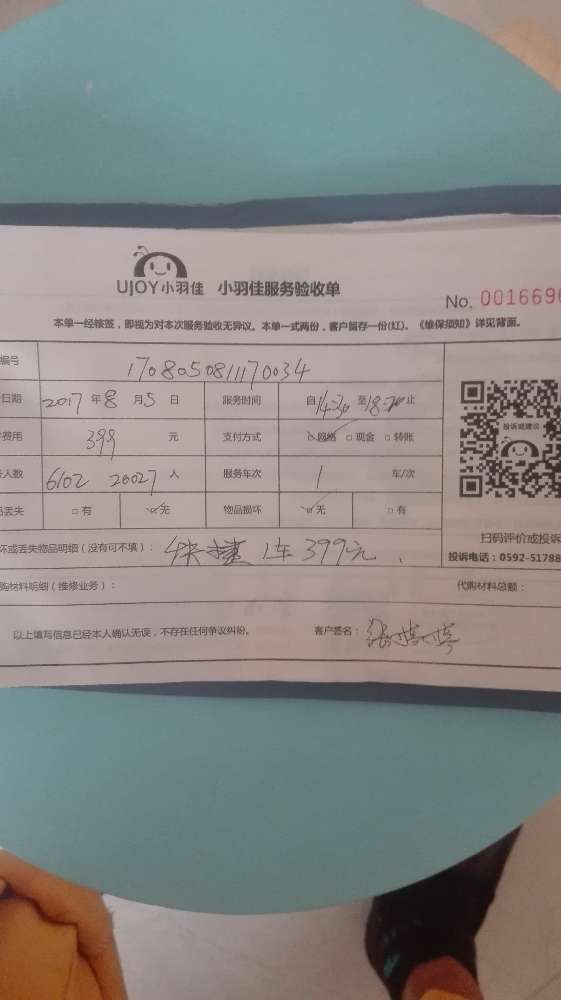 UJOY小羽佳 小羽佳服务验收单
No. 0016696
本单一经核签，即视为对本次服务验收无异议。本单一式两份，客户留存一份(红)。《维保须知》详见背面。
编号 1708050811170034
日期 2017 年 8 月 5 日 服务时间 自 14:30 至 18:20 止
费用 399 元 支付方式 ☑网络 □现金 □转账
人数 6102 20027 人 服务车次 1 车/次
丢失 □有 ☑无 物品损坏 ☑无 □有
投诉或建议
扫码评价或投诉
投诉电话：0592-51788
坏或丢失物品明细（没有可不填）： 1车 399元
购材料明细（维修业务）： 代购材料总额：
以上填写信息已经本人确认无误，不存在任何争议纠纷。 客户签名：